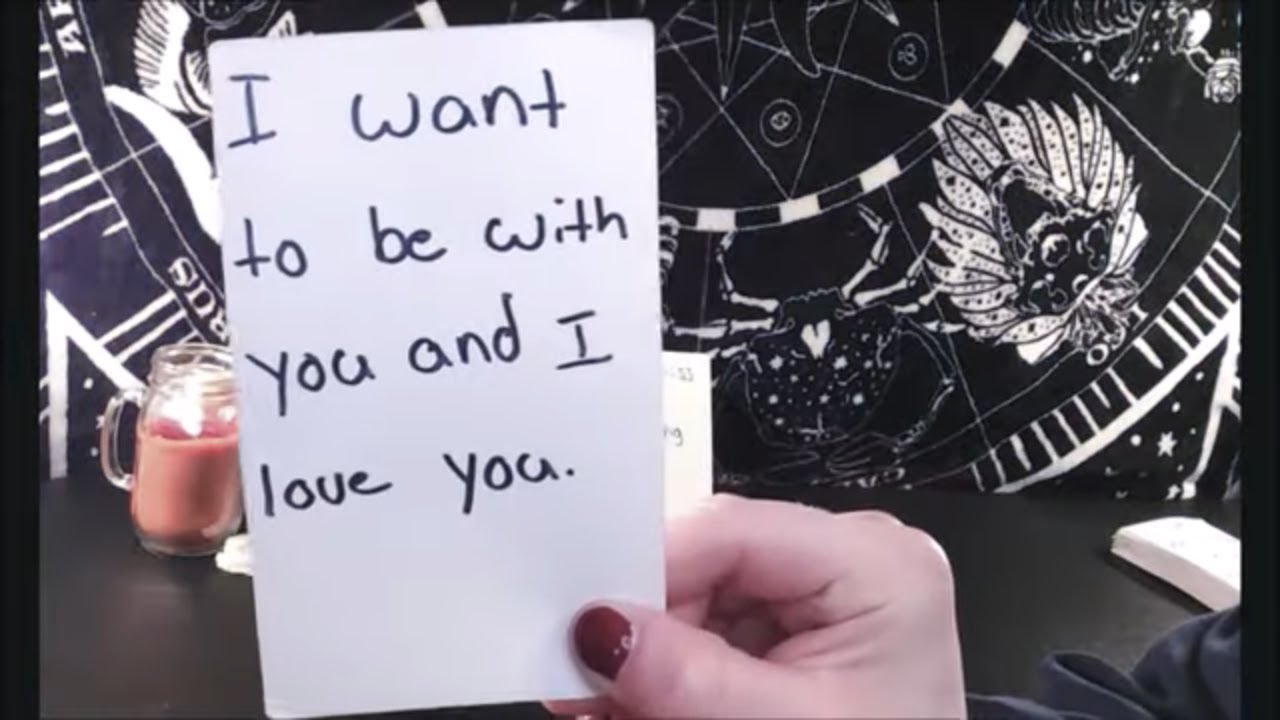 I want
to be with
you and I
love you.